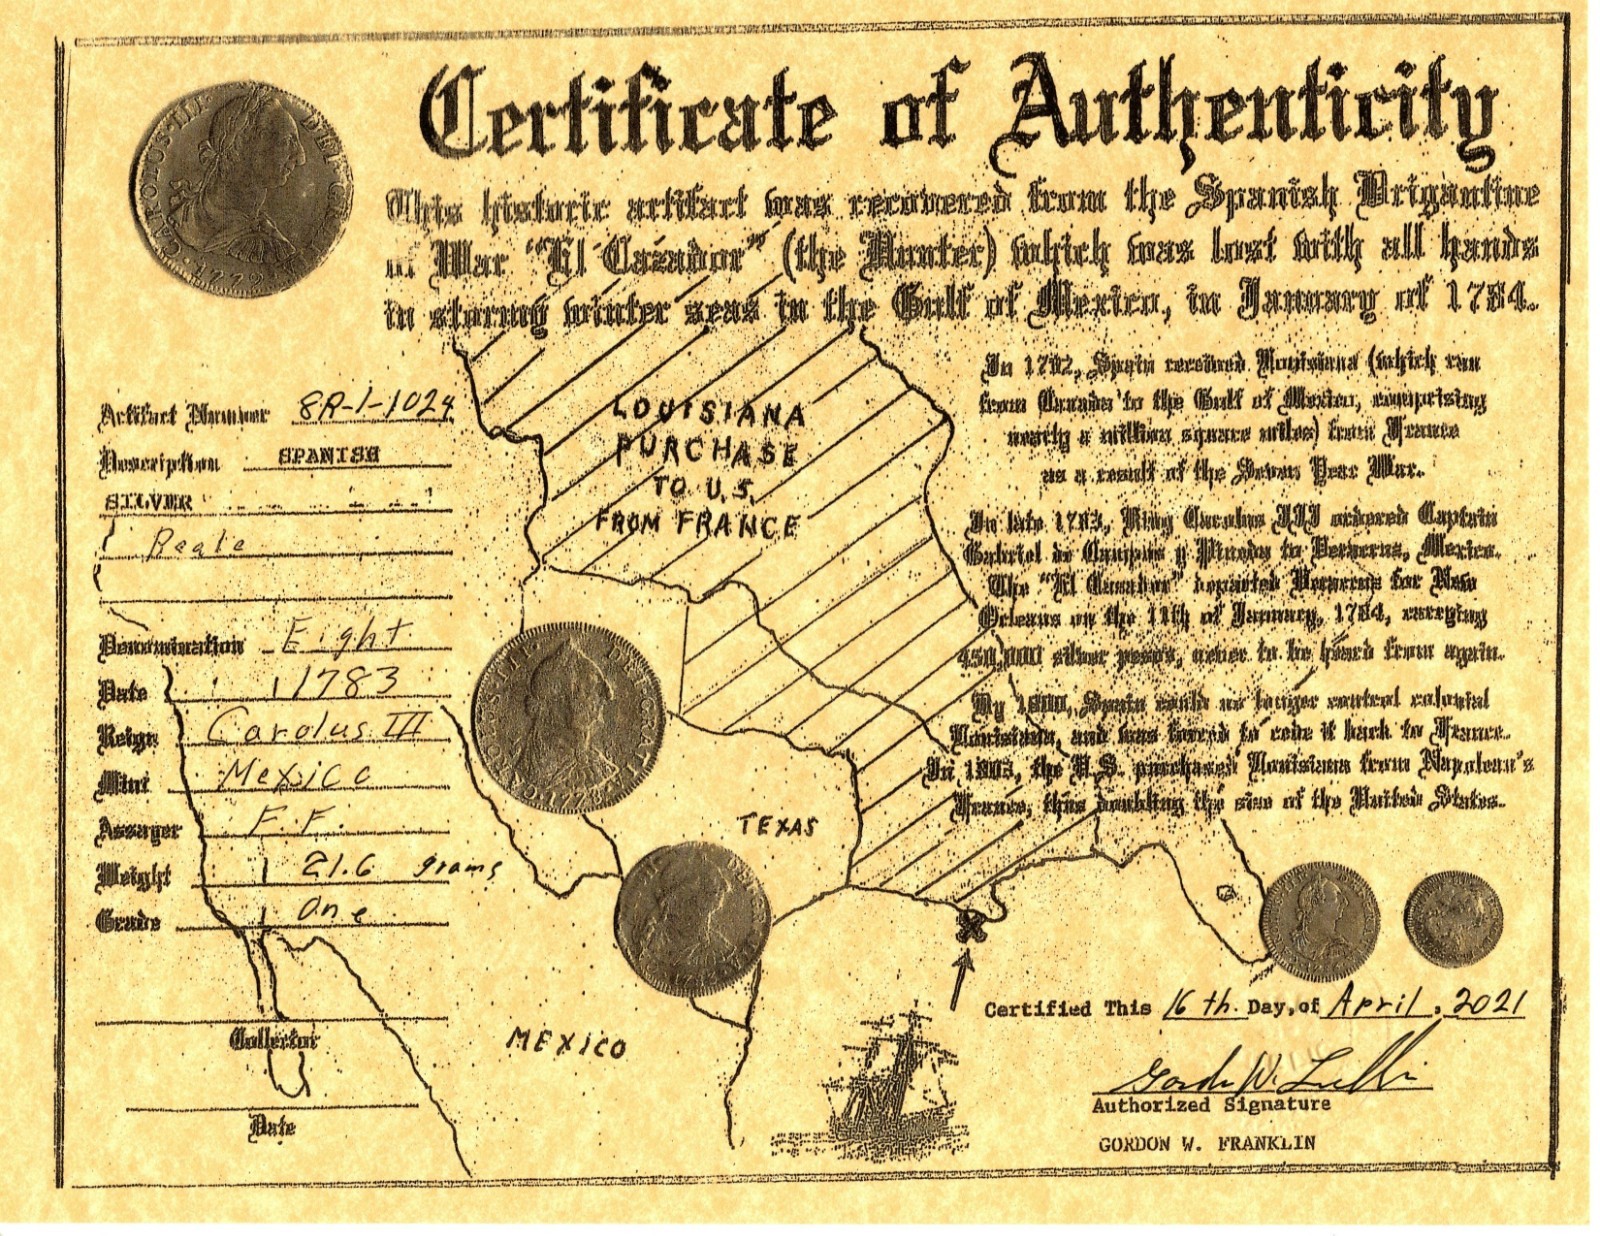 Certificate of Authenticity
This historic artifact was recovered from the Spanish Brigantine
of War "El Cazador" (the Hunter) which was lost with all hands
in stormy winter seas in the Gulf of Mexico, in January of 1784.
CAROLUS III DEI GRATIA
1772
Artifact Number 8R-1-1024
Description SPANISH
SILVER
Reale
Denomination Eight
Date 1783
Reign Carolus III
Mint Mexico
Assayer F.F.
Weight 21.6 grams
Grade One
Collector
Date
LOUISIANA
PURCHASE
TO U.S.
FROM FRANCE
TEXAS
MEXICO
In 1762, Spain received Louisiana (which ran
from Canada to the Gulf of Mexico, comprising
nearly a million square miles) from France
as a result of the Seven Year War.
In late 1783, King Carolus III ordered Captain
Gabriel de Campos y Pineda to Veracruz, Mexico.
The "El Cazador" departed Veracruz for New
Orleans on the 11th of January, 1784, carrying
450,000 silver pesos, never to be heard from again.
By 1800, Spain could no longer control colonial
Louisiana, and was forced to cede it back to France.
In 1803, the U.S. purchased Louisiana from Napolean's
France, thus doubling the size of the United States.
Certified This 16th. Day, of April, 2021
Authorized Signature
GORDON W. FRANKLIN